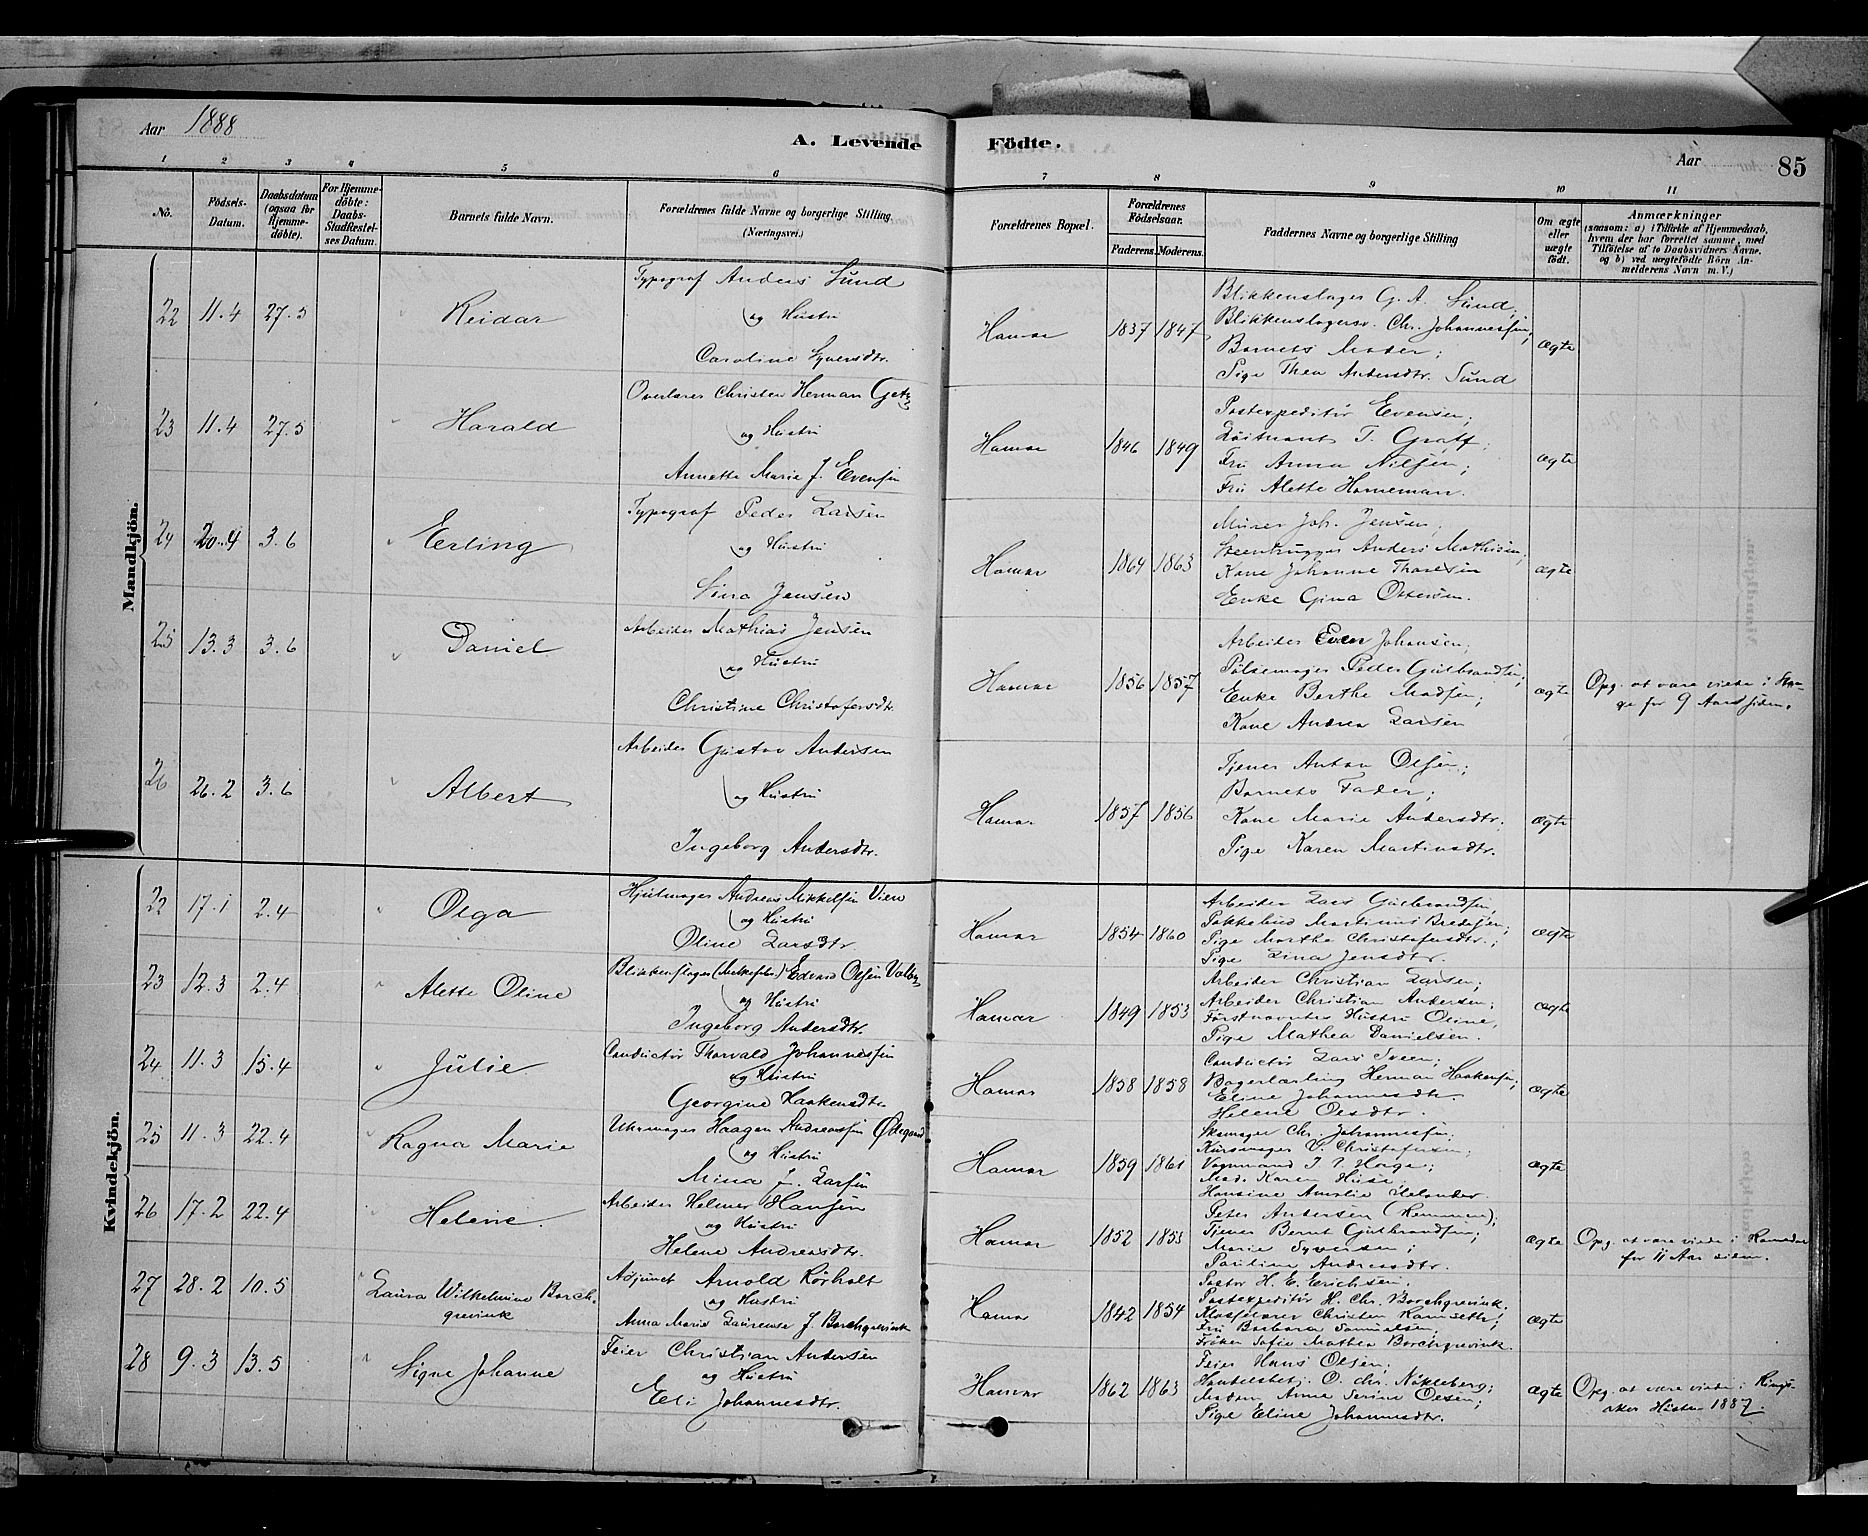 Aar 1888
A. Levende
Födte.
Aar
85
1 2 3 4 5 6 7 8 9 10 11
No.
Födsels-Datum.
Daabsdatum (ogsaa for Hjemme-döbte).
For Hjemme-döbte: Daabs-Stadfæstel-ses Datum.
Barnets fulde Navn.
Forældrenes fulde Navne og borgerlige Stilling.
(Næringsvei.)
Forældrenes Bopæl.
Forældrenes Födselsaar.
Faderens. Moderens.
Faddernes Navne og borgerlige Stilling
Om ægte eller uægte födt.
Anmærkninger
(saasom: a) i Tilfælde af Hjemmedaab,
hvem der har forrettet samme, med
Tilföielse af to Daabsvidners Navne,
og b) ved uægtefödte Börn An-
melderens Navn m. V.)
Mandkjön.
22 11.4 27.5 Reidar
Typograf Anders Lund
og Hustru
Caroline Syversdtr.
Hamar 1837 1847
Blikkenslager G. A. Lund;
Blikkenslagersv. Chr. Johannessen;
Barnets Moder;
Pige Thea Andersdtr. Lund
ægte
23 11.4 27.5 Harald
Overlærer Christen Herman Getz
og Hustru
Annette Marie J. Evensen
Hamar 1846 1849
Postexpeditör Evensen;
Löitnant T. Graff;
Fru Anna Nilsen;
Fru Alette Horneman.
ægte
24 20.4 3.6 Erling
Typograf Peder Larsen
og Hustru
Sina Jensen
Hamar 1864 1863
Murer Joh. Jensen;
Steenhugger Anders Mathisen;
Kone Johanne Thoresen
Enke Gina Ottersen.
ægte
25 13.3 3.6 Daniel
Arbeider Mathias Jensen
og Hustru
Christine Christofersdtr.
Hamar 1856 1857
Arbeider Even Johansen;
Pölsemager Peder Gulbrandsen;
Enke Berthe Madsen;
Kone Andrea Larsen
ægte
Opg. at være viede i Stan-
ge for 9 Aar siden.
26 26.2 3.6 Albert
Arbeider Gustav Andersen
og Hustru
Ingeborg Andersdtr.
Hamar 1857 1856
Tjener Anton Olsen;
Barnets Fader;
Kone Marie Andersdtr.
Pige Karen Martinsdtr.
ægte
Kvindekjön.
22 17.1 2.4 Olga
Hjulmager Andreas Mikkelsen Vien
og Hustru
Oline Larsdtr.
Hamar 1854 1860
Arbeider Lars Gulbrandsen,
Pakkebud Martinus Bredesen;
Pige Marthe Christofersdtr.;
Pige Lina Jensdtr.
ægte
23 12.3 2.4 Alette Oline
Blikkenslager Edvard Olsen
og Hustru
Ingeborg Andersdtr.
Hamar 1849 1853
Arbeider Christian Larsen;
Arbeider Christian Andersen;
Förstnævntes Hustru Oline,
Pige Mathea Danielsen.
ægte
24 11.3 15.4 Julie
Conductör Thorvald Johannessen
og Hustru
Georgine Haakensdtr
Hamar 1858 1858
Conductör Lars Sveen;
Bagerlærling Herman Haakensen;
Eline Johannesdtr.
Helene Olsdtr.
ægte
25 11.3 22.4 Ragna Marie
Uhrmager Haagen Andreassen Ödegaard
og Hustru
Mina J. Larsen
Hamar 1859 1861
Skomager Chr. Johannessen;
Kurvmager V. Christofersen;
Vognmand I. P. Horge;
Mad. Karen Huse;
Hansine Amalie Helander.
ægte
26 17.2 22.4 Helene.
Arbeider Helmer Hansen
og Hustru
Helene Andreasdtr.
Hamar 1852 1855
Peter Andersen (Remmen);
Tjener Bernt Gulbrandsen;
Marie Syversen;
Pauline Andreasdtr.
ægte
Opg. at være viede i Romedal
for 11 Aar siden.
27 28.2 10.5 Laura Wilhelmine Borch-
grevink
Adjunct Arnold Rörholt
og Hustru
Anna Marie Laurense J. Borchgrevink
Hamar 1842 1854
Pastor H. E. Erichsen.
Postexpeditör H. Chr. Borchgrevink.
Klasselærer Christen Ramseth;
Fru Barbara Samuelsen;
Fröken Sofie Mathea Borchgrevink.
ægte
28 9.3 13.5 Signe Johanne
Feier Christian Andersen
og Hustru
Eli Johannesdtr.
Hamar 1862 1863
Feier Hans Olsen.
Handelsbetj. O. Chr. Nökleberg;
Madam Anne Serine Olsen;
Pige Eline Johannesdtr.
ægte
Opg. at være viede i Rings-
aker Hösten 1887.